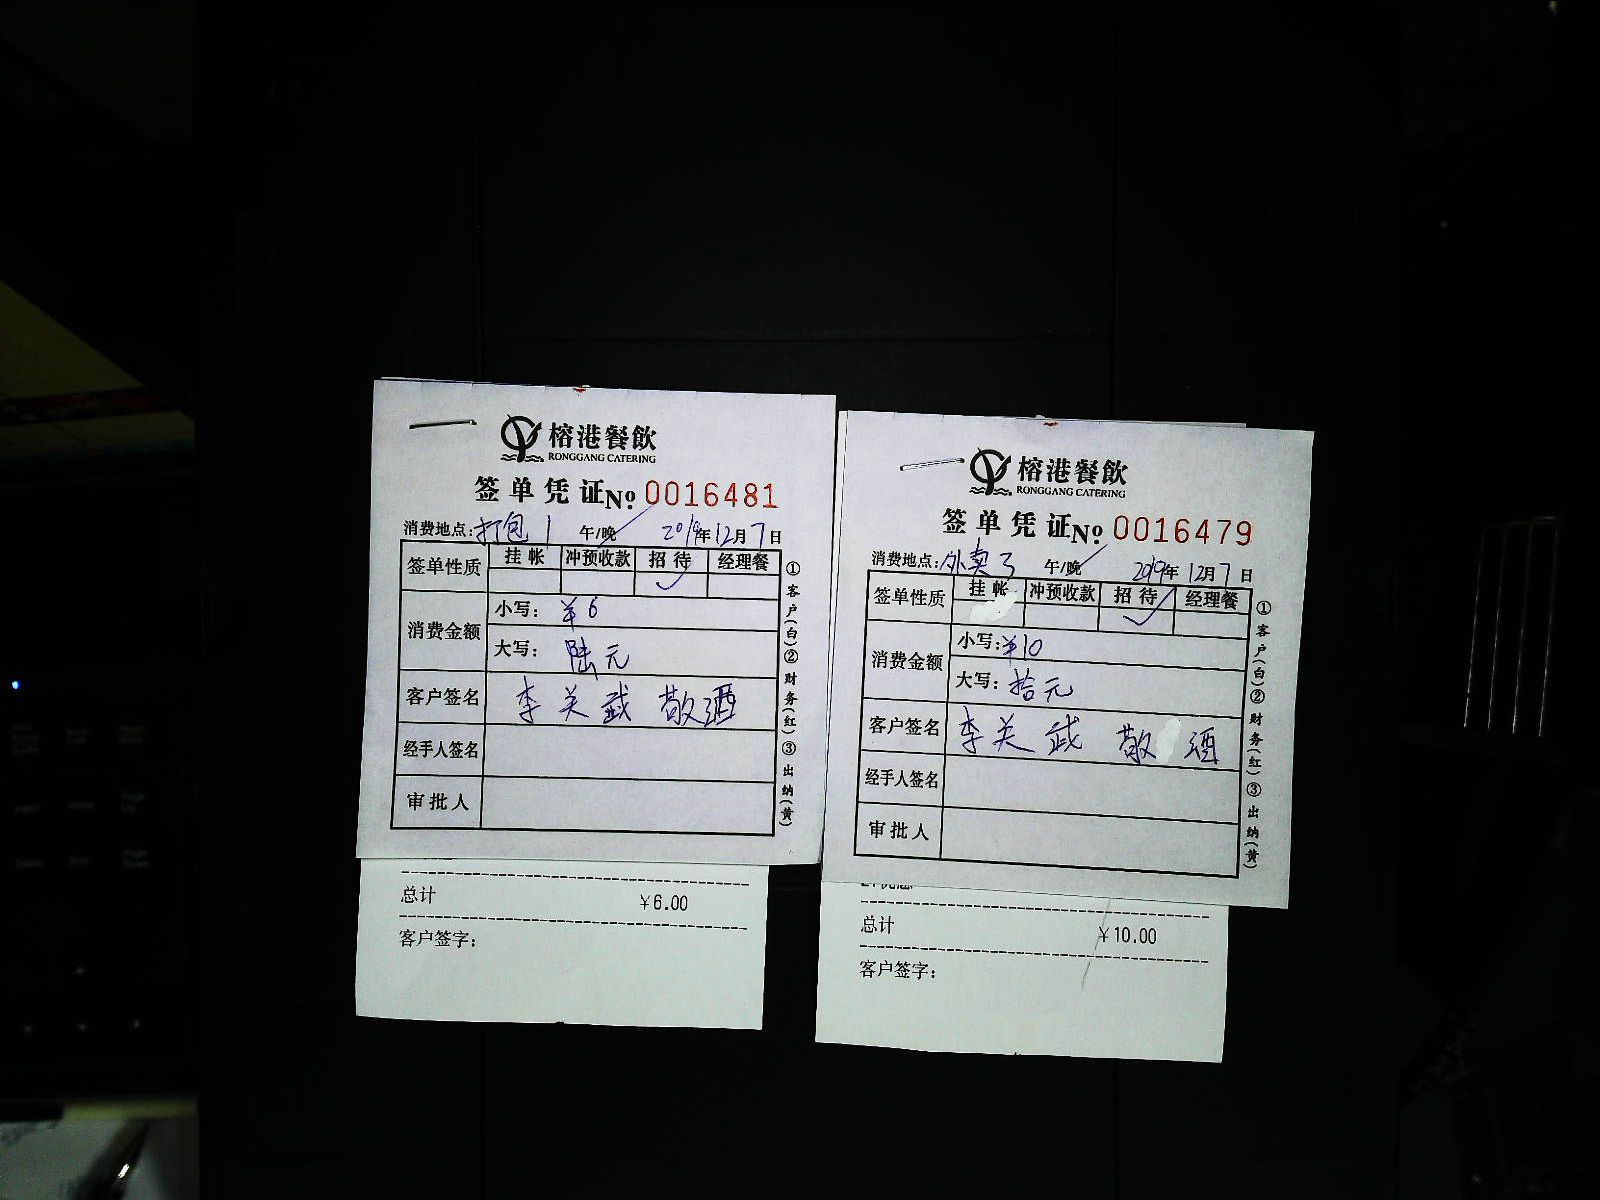 榕港餐飲
RONGGANG CATERING
签单凭证 № 0016481
消费地点：打包1 午/晚 2019年12月7日
签单性质 挂帐 冲预收款 招待 经理餐
消费金额 小写：¥6
大写：陆元
客户签名 李关武 敬酒
经手人签名
审批人
①客户(白)②财务(红)③出纳(黄)
总计 ¥6.00
客户签字：
榕港餐飲
RONGGANG CATERING
签单凭证 № 0016479
消费地点：外卖3 午/晚 2019年12月7日
签单性质 挂帐 冲预收款 招待 经理餐
消费金额 小写：¥10
大写：拾元
客户签名 李关武 敬酒
经手人签名
审批人
①客户(白)②财务(红)③出纳(黄)
总计 ¥10.00
客户签字：